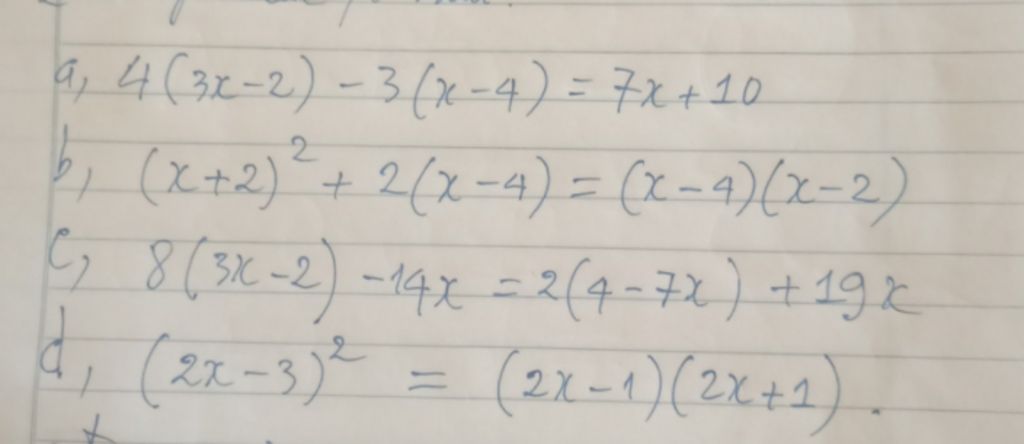 a, 4(3x-2) - 3(x-4) = 7x+10
b, (x+2)² + 2(x-4) = (x-4)(x-2)
c, 8(3x-2) -14x = 2(4-7x) +19x
d, (2x-3)² = (2x-1)(2x+1).